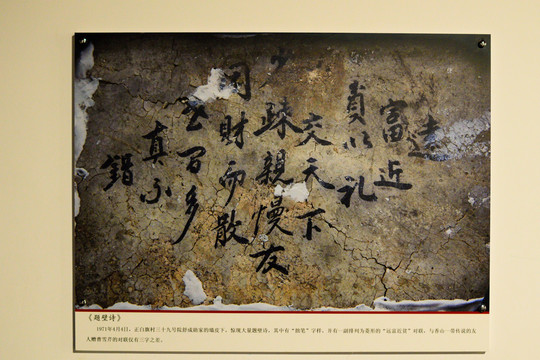 遠
富近
貧以礼
交天下
少
疎親慢友
因財而散
多
真不
錯
《题壁诗》
1971年4月4日,正白旗村三十九号院舒成勋家的墙皮下,惊现大量题壁诗,其中有“拙笔”字样,并有一副排列为菱形的“远富近贫”对联,与香山一带传说的友
人赠曹雪芹的对联仅有三字之差。